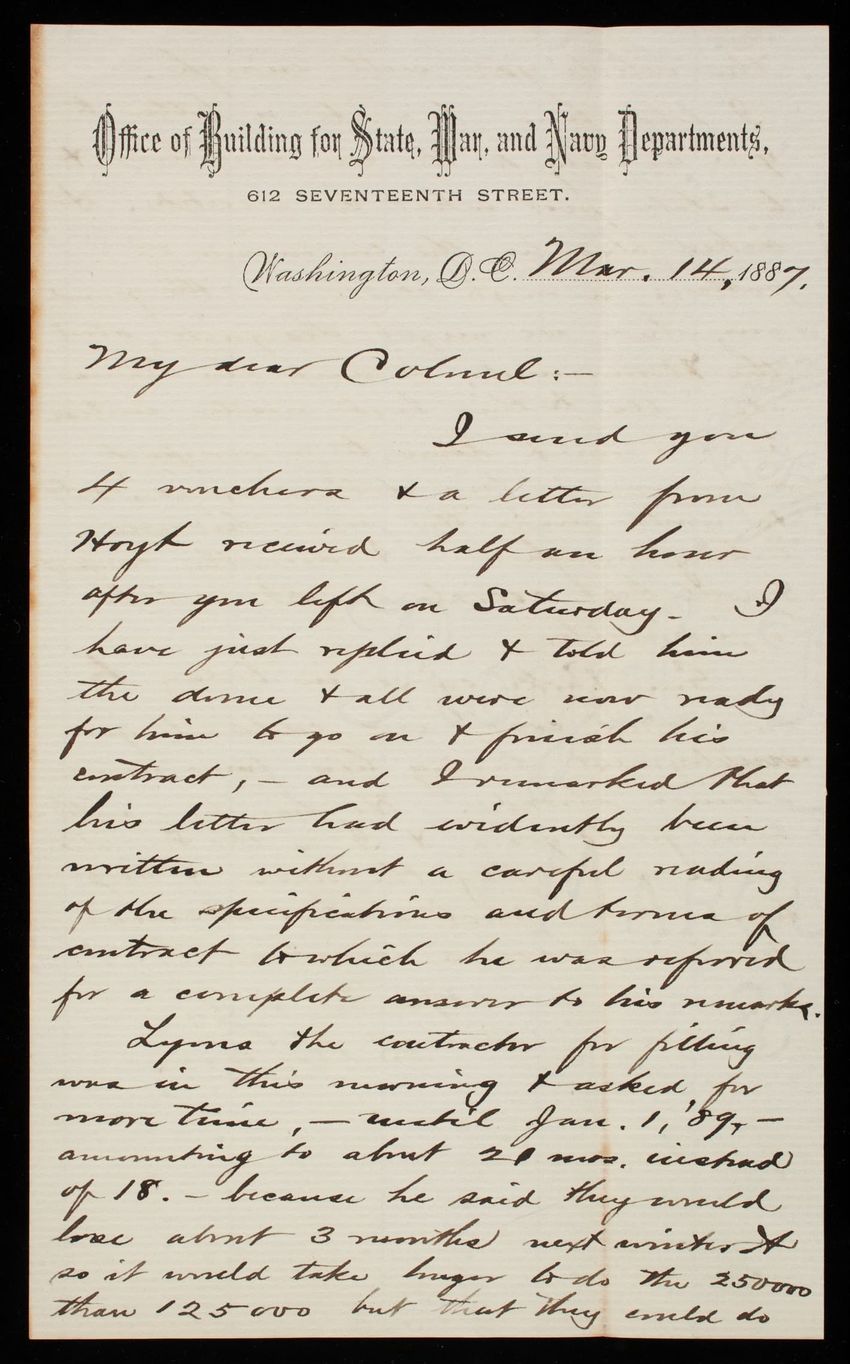 Office of Building for State, War, and Navy Departments,
612 SEVENTEENTH STREET.
Washington, D.C. Mar. 14, 1887.
My dear Colonel :—
I send you
4 vouchers & a letter from
Hoyt received half an hour
after you left on Saturday. I
have just replied & told him
the dome & all were now ready
for him to go on & finish his
contract, — and I remarked that
his letter had evidently been
written without a careful reading
of the specifications and terms of
contract to which he was referred
for a complete answer to his remarks.
Lyons the contractor for filling
was in this morning & asked for
more time, — until Jan. 1, '89, —
amounting to about 21 mos. instead
of 18. — because he said they would
lose about 3 months next winter &
so it would take longer to do the 250000
than 125000 but that they could do